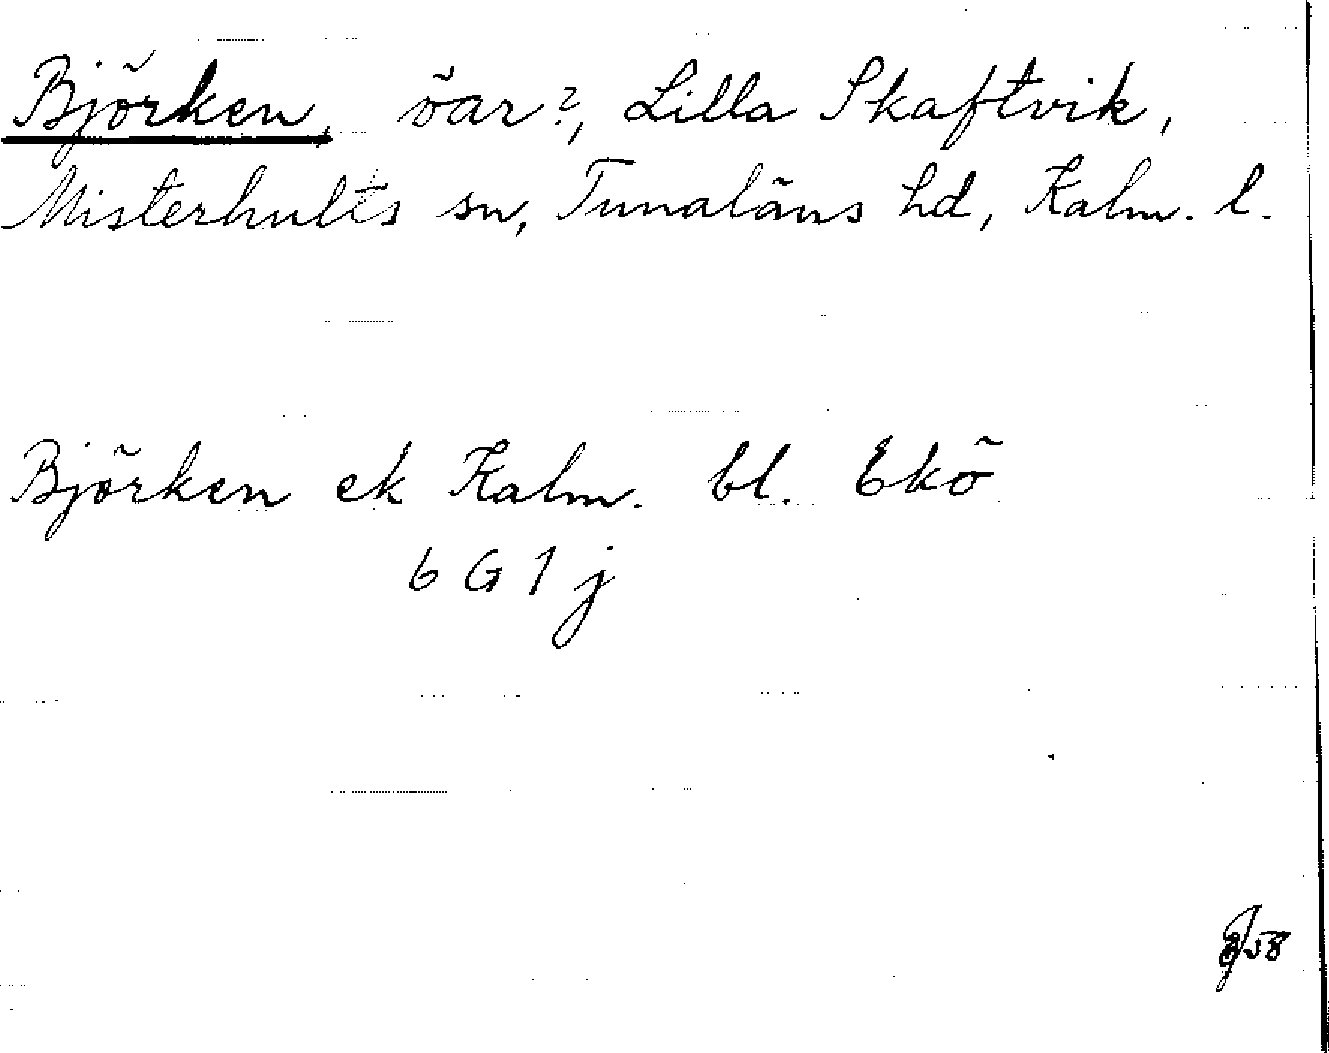 Björken, öar?, Lilla Skaftvik,
Misterhults sn, Tunaläns hd, Kalm. l.
Björken ek Kalm. bl. Ekö
6 G 1 j